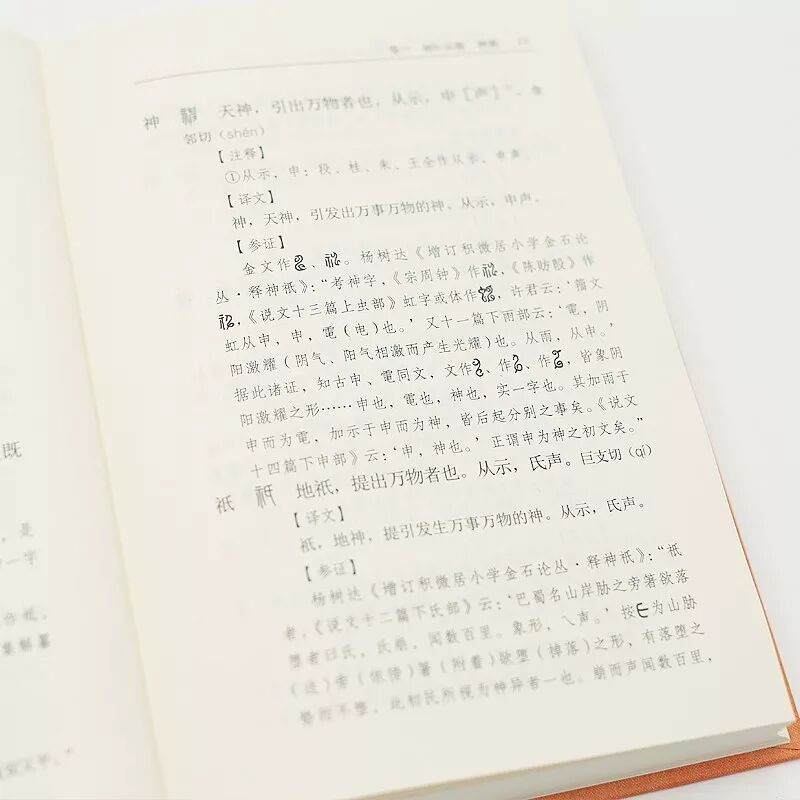 神 天神，引出万物者也，从示，申［声］①。食
邻切（shén）
【注释】
①从示，申：段、桂、朱、王全作从示，申声。
【译文】
神，天神，引发出万事万物的神。从示，申声。
【参证】
金文作、。杨树达《增订积微居小学金石论
丛·释神祇》：“考神字，《宗周钟》作，《陈昉殷》作
，《说文十三篇上虫部》虹字或体作，许君云：‘籀文
虹从申，申，電（电）也。’又十一篇下雨部云：‘電，阴
阳激耀（阴气、阳气相激而产生光耀）也。从雨，从申。’
据此诸证，知古申、電同文，文作、作、作，皆象阴
阳激耀之形……申也，電也，神也，实一字也。其加雨于
申而为電，加示于申而为神，皆后起分别之事矣。《说文
十四篇下申部》云：‘申，神也。’正谓申为神之初文矣。”
祇 祇 地祇，提出万物者也。从示，氏声。巨支切（qí）
【译文】
祇，地神，提引发生万事万物的神。从示，氏声。
【参证】
杨树达《增订积微居小学金石论丛·释神祇》：“祇
者，《说文十二篇下氏部》云：‘巴蜀名山岸胁之旁箸欲落
堕者曰氏，氏崩，闻数百里。象形，乁声。’按为山胁
（边）旁（依傍）著（附着）欲堕（掉落）之形，有落堕之
势而不堕，此初民所视为神异者一也。崩而声闻数百里，
既
，是
一字